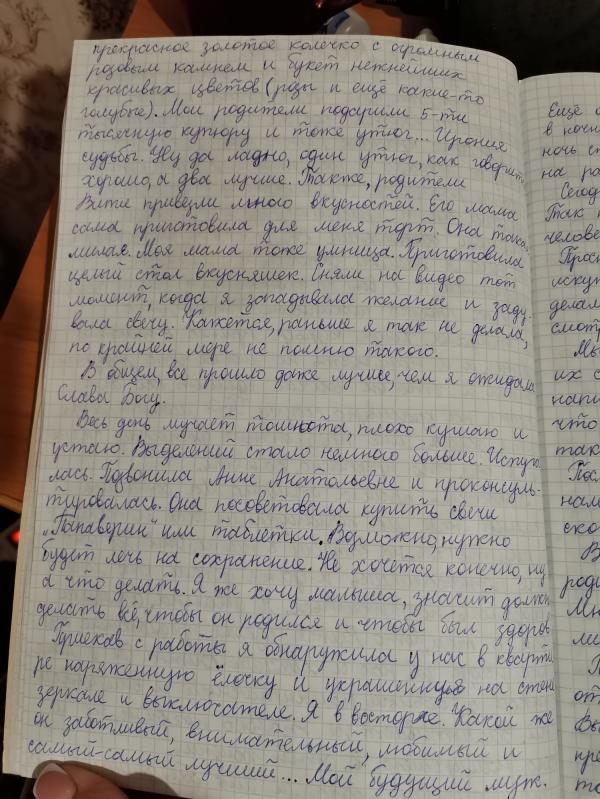 прекрасное золотое колечко с огромным
розовым камнем и букет нежнейших
красивых цветов (розы и ещё какие-то
голубые). Мои родители подарили 5-ти
тысячную купюру и тоже утюг... Ирония
судьбы. Ну да ладно, один утюг, как говорит
хорошо, а два лучше. Также, родители
Вити привезли много вкусностей. Его мама
сама приготовила для меня торт. Она така
милая. Моя мама тоже умница. Приготовила
целый стол вкусняшек. Сняли на видео тот
момент, когда я загадывала желание и заду
вала свечу. Кажется, раньше я так не делала,
по крайней мере не помню такого.
В общем, все прошло даже лучше, чем я ожидала
Слава Богу.
Весь день мучает тошнота, плохо кушаю и
устаю. Выделений стало немного больше. Испуга
лась. Позвонила Анне Анатольевне и проконсуль-
тировалась. Она посоветовала купить свечи
„Папаверин" или таблетки. Возможно, нужно
будет лечь на сохранение. Не хочется конечно, ну
а что делать. Я же хочу малыша, значит должн
делать всё, чтобы он родился и чтобы был здоров
Приехав с работы я обнаружила у нас в кварти
ре наряженную ёлочку и украшенную на стене
зеркале и выключателе. Я в восторге. Какой же
он заботливый, внимательный, любимый и
самый-самый лучший... Мой будущий муж.
Ещё
в ночн
ночь ст
на ра
Сегод
Так
челове
Прос
искуп
делам
смотр
Мы
их с
напи
что
так
Пос
нам
ско
В
роди
Мн
ми
П
от
Вы
пре